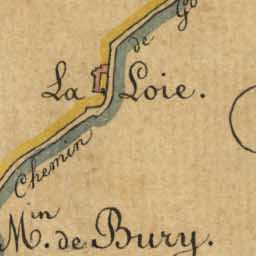 de
La Loie.
Chemin
M.in de Bury.